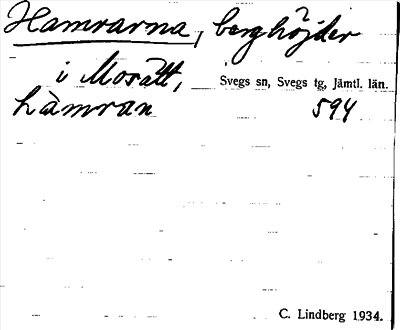 Hamrarna, berghöjder
i Morätt, Svegs sn, Svegs tg, Jämtl. län.
hàmran 594
C. Lindberg 1934.